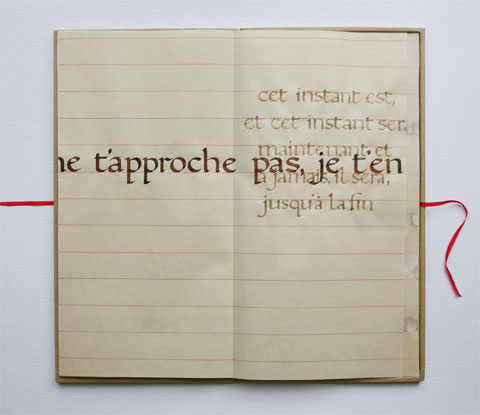 ne t'approche pas, je t'en
cet instant est,
et cet instant ser
maintenant et
à jamais, il sera,
jusqu'à la fin